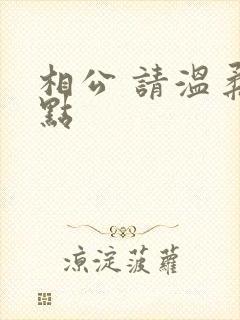 相公 請溫柔
點
凉淀菠蘿